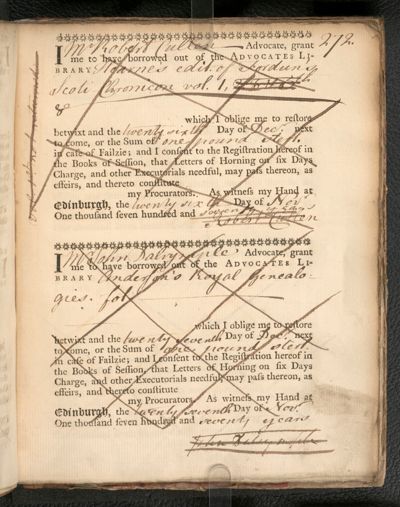 272.
I Mr Robert Cullen Advocate, grant
me to have borrowed out of the ADVOCATES LI-
BRARY Hearne's edit. of Fordun's
Scoti Chronicon vol. 1,
8
which I oblige me to restore
betwixt and the twenty sixth Day of Dec. next
to come, or the Sum of one pound sterl.
in case of Failzie; and I consent to the Registration hereof in
the Books of Session, that Letters of Horning on six Days
Charge, and other Executorials needful, may pass thereon, as
effeirs, and thereto constitute
my Procurators. As witness my Hand at
Edinburgh, the twenty sixth Day of Nov.
One thousand seven hundred and seventy years
Robert Cullen
I Mr John Dalrymple Advocate, grant
me to have borrowed out of the ADVOCATES LI-
BRARY Anderson's Royal Genealo-
gies. fol.
which I oblige me to restore
betwixt and the twenty seventh Day of Dec. next
to come, or the Sum of one pound sterl.
in case of Failzie; and I consent to the Registration hereof in
the Books of Session, that Letters of Horning on six Days
Charge, and other Executorials needful, may pass thereon, as
effeirs, and thereto constitute
my Procurators. As witness my Hand at
Edinburgh, the twenty seventh Day of Nov.
One thousand seven hundred and seventy years
John Dalrymple